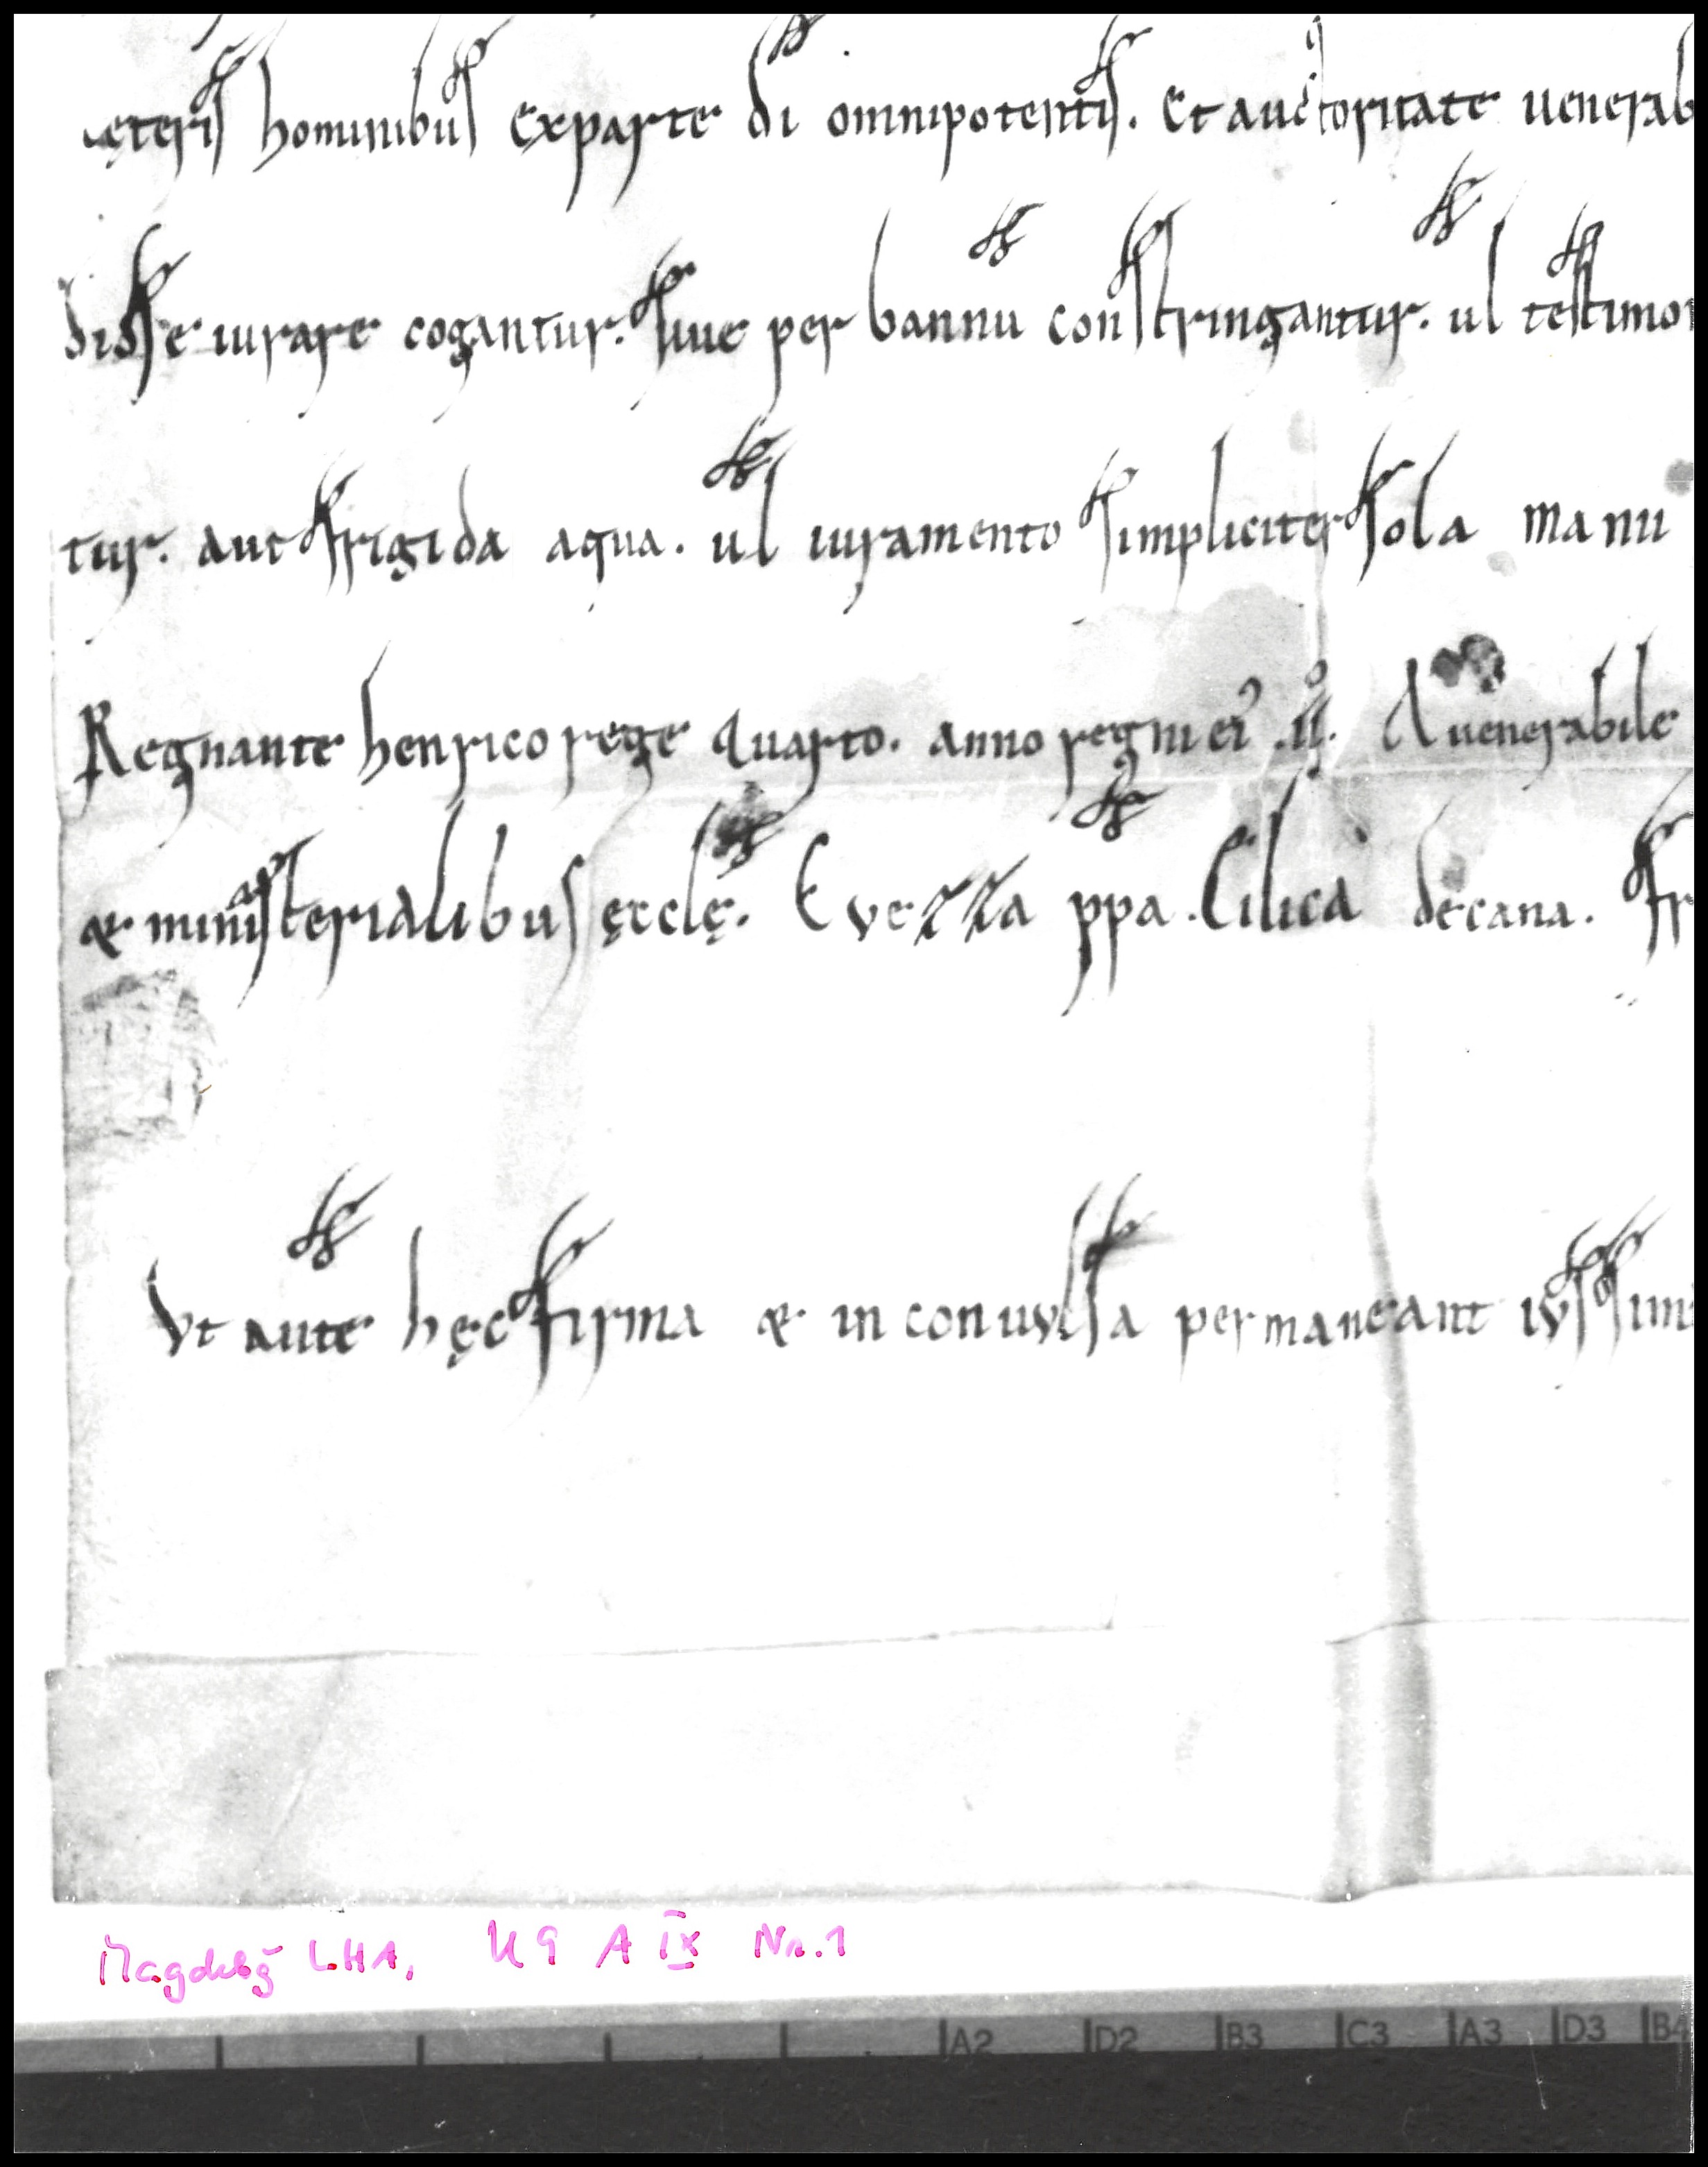 cęteris hominibus Exparte di omnipotentis. Et auctoritate uenerab
disse iurare cogantur. siue per bannu constringantur. ul testimon
tur. aut frigida aqua. ul iuramento simpliciter sola manu
Regnante henrico rege quarto. anno regni ei᾽ .II. A uenerabile
& ministerialibus ęcclę. Kvezza ppa. Cilica decana. fr
Vt aute hęc firma & in conuulsa permaneant iussim
Magdebg LHA, U 9 A IX Nr. 1
A2 D2 B3 C3 A3 D3 B4